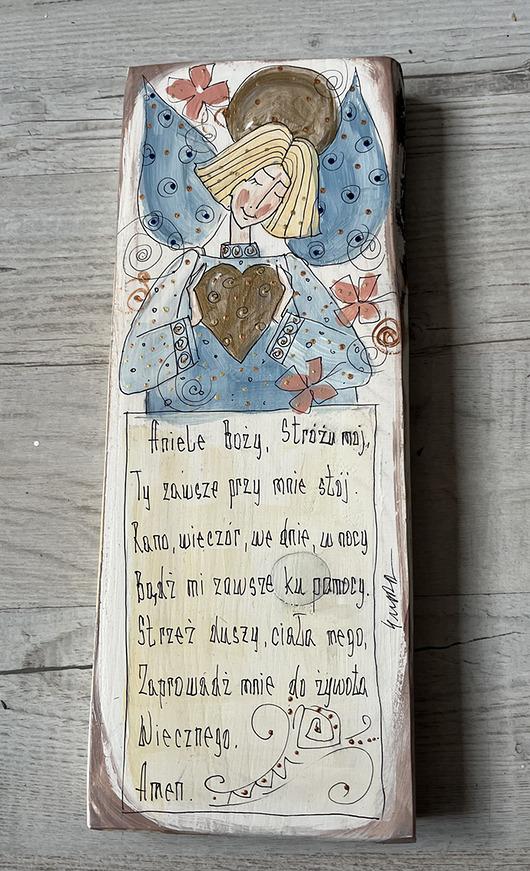 Aniele Boży, Stróżu mój,
Ty zawsze przy mnie stój.
Rano, wieczór, we dnie, w nocy
Bądź mi zawsze ku pomocy.
Strzeż duszy, ciała mego,
Zaprowadź mnie do żywota
Wiecznego.
Amen.